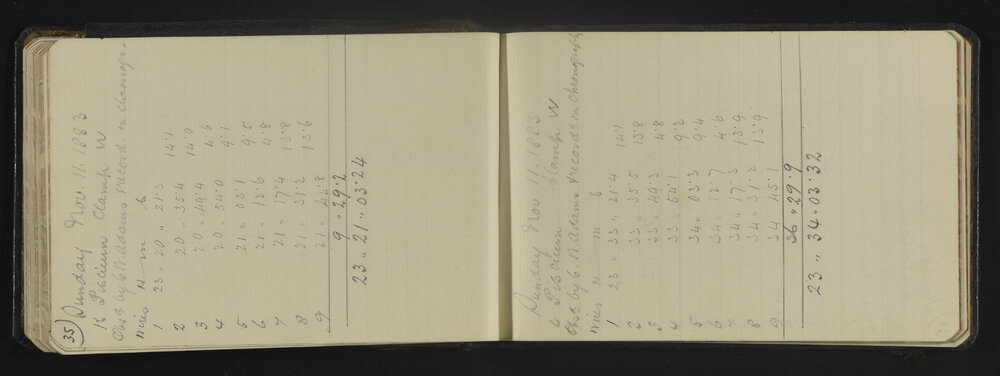 35 Sunday Nov. 11. 1883
κ Piscium Clamp W
Obsd by C. W. Adams & record on chronogr.
Wires H m s
1 23 " 20 " 21.3
14.1
2 20 " 35.4
14.0
3 20 " 49.4
4.6
4 20 " 54.0
9.1
5 21 " 03.1
9.5
6 21 " 12.6
4.8
7 21 " 17.4
13.8
8 21 " 31.2
13.6
9 21 " 44.8
9 " 29.2
23 " 21 " 03.24
Sunday Nov. 11. 1883
ι Piscium Clamp W
Obsd by C. W. Adams & record on chronograph
Wires H m s
1 23 " 33 " 21.4
14.1
2 33 " 35.5
13.8
3 33 " 49.3
4.8
4 33 " 54.1
9.2
5 34 " 03.3
9.4
6 34 " 12.7
4.6
7 34 " 17.3
13.9
8 34 " 31.2
13.9
9 34 " 45.1
36 " 29.9
23 " 34 " 03.32